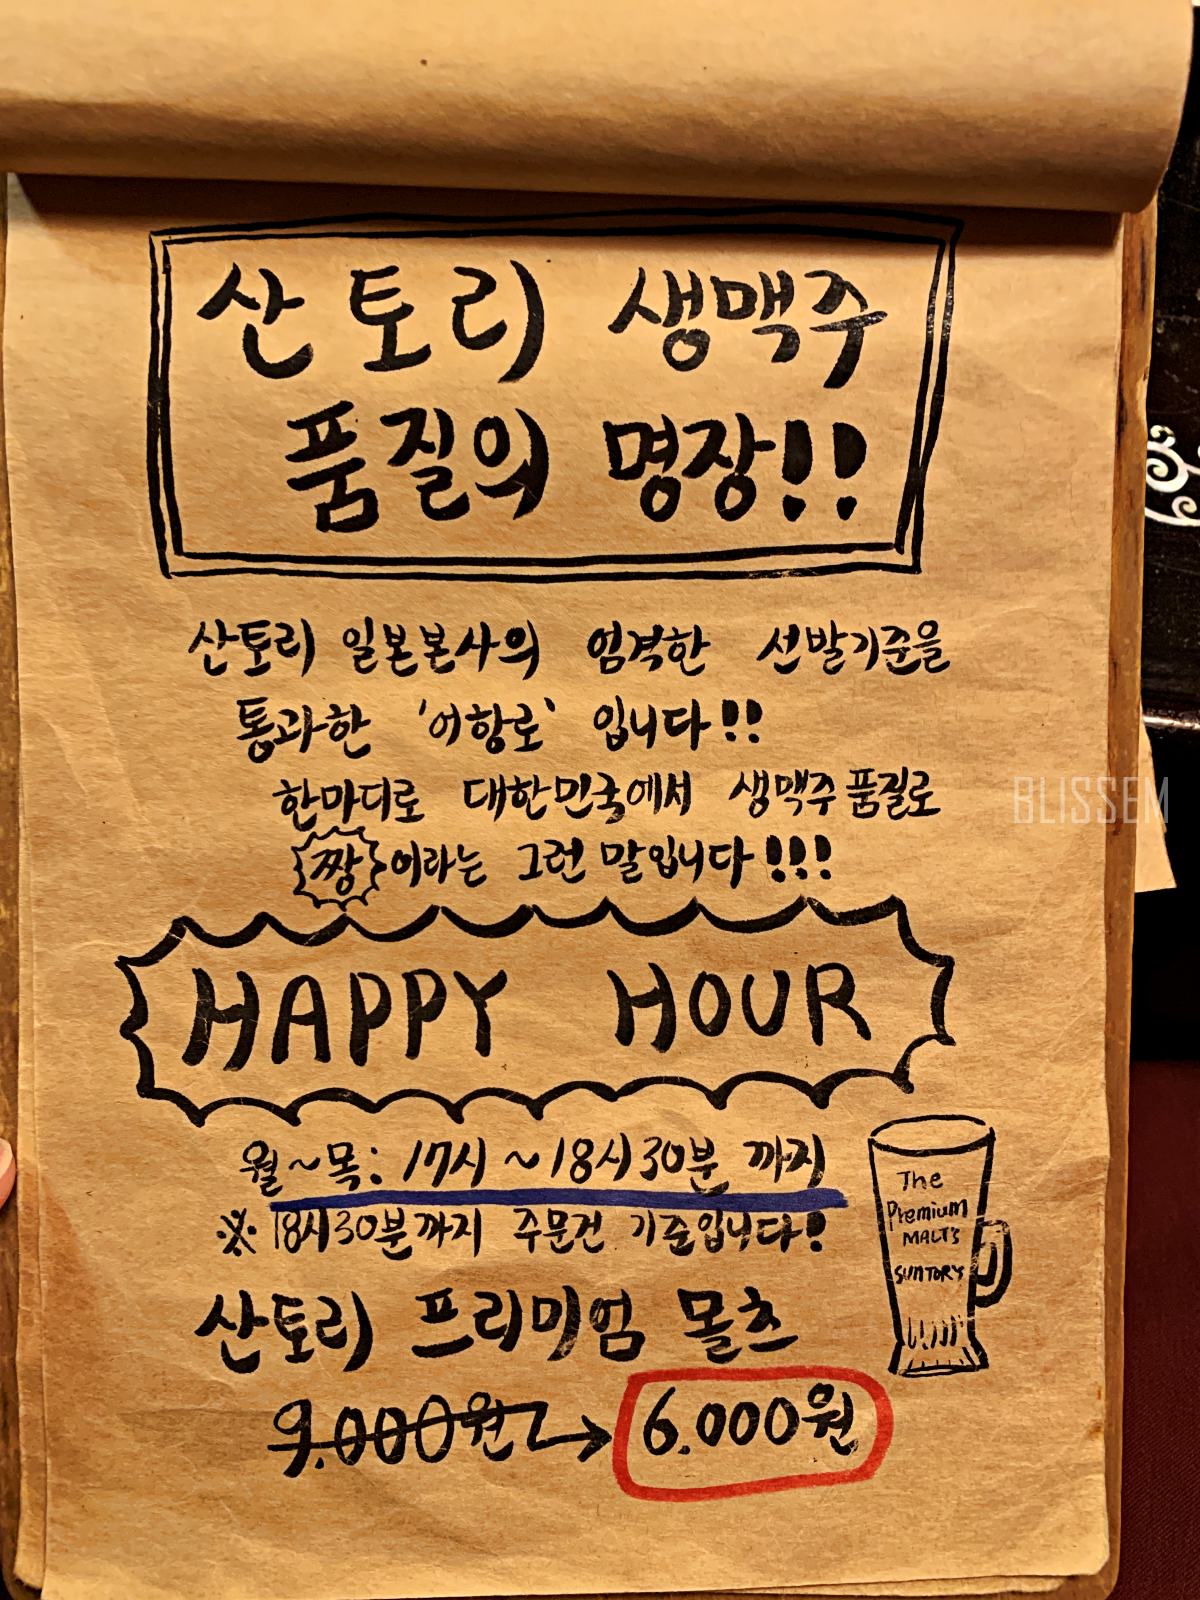 산토리 생맥주
품질의 명장!!
산토리 일본본사의 엄격한 선발기준을
통과한 '어항로' 입니다!!
한마디로 대한민국에서 생맥주 품질로
짱 이라는 그런 말입니다!!!
HAPPY HOUR
월~목: 17시~18시30분 까지
※ 18시30분까지 주문건 기준입니다!
산토리 프리미엄 몰츠
9.000원 → 6.000원
The
Premium
MALT's
SUNTORY
BLISSEM